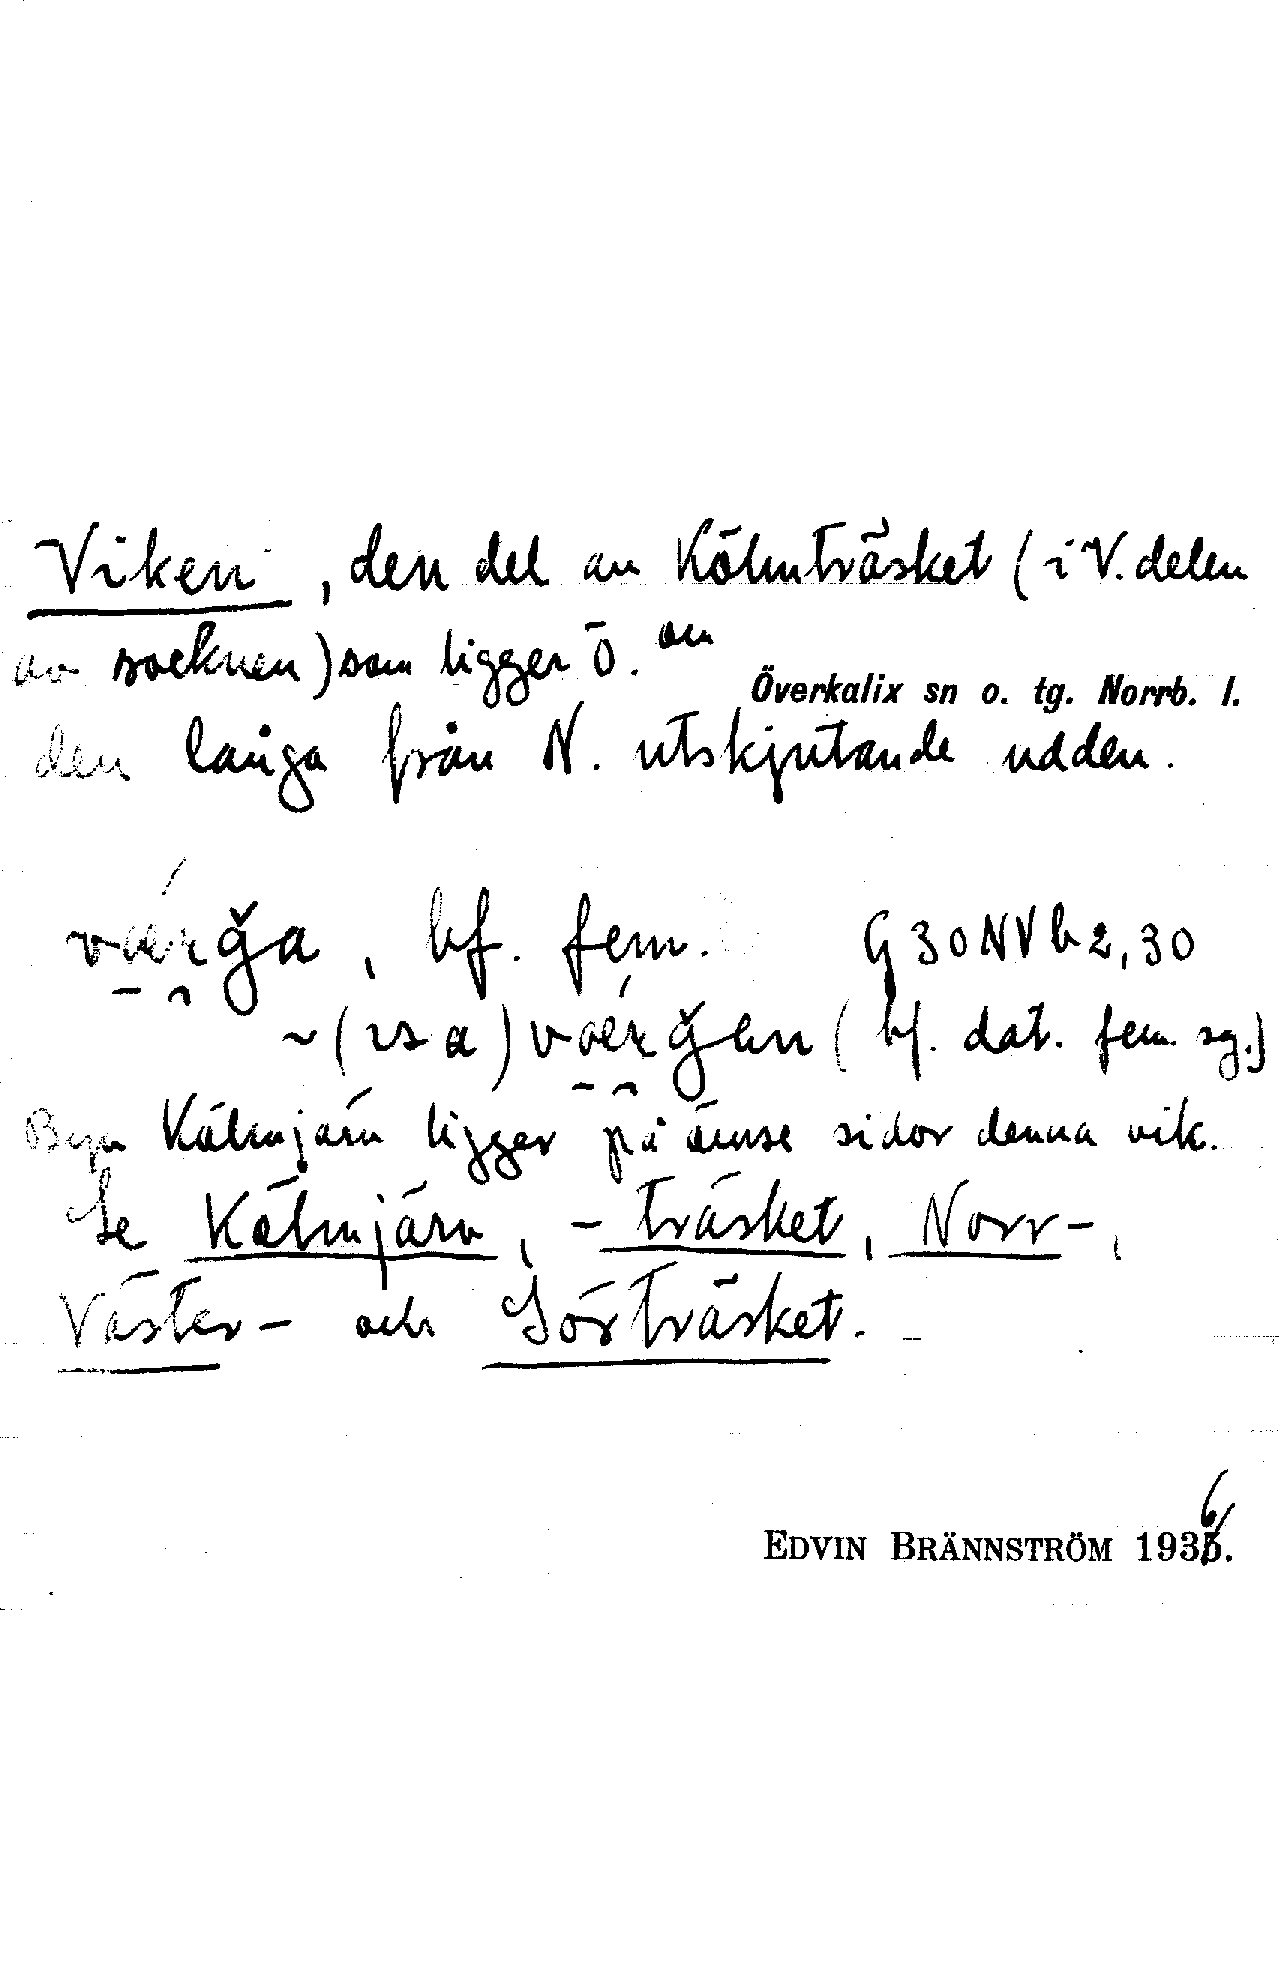 Viken, den del av Kölmträsket (i V. delen
av socknen) som ligger Ö. om
Överkalix sn o. tg. Norrb. l.
den långa från N. utskjutande udden.
bf. fem. G 30 NV b 2, 30
(bf. dat. fem. sg.)
Byn Kölmjärv ligger på ömse sidor denna vik.
Se Kölmjärv, -träsket, Norr-,
Väster- och Sörträsket.
EDVIN BRÄNNSTRÖM 1936.